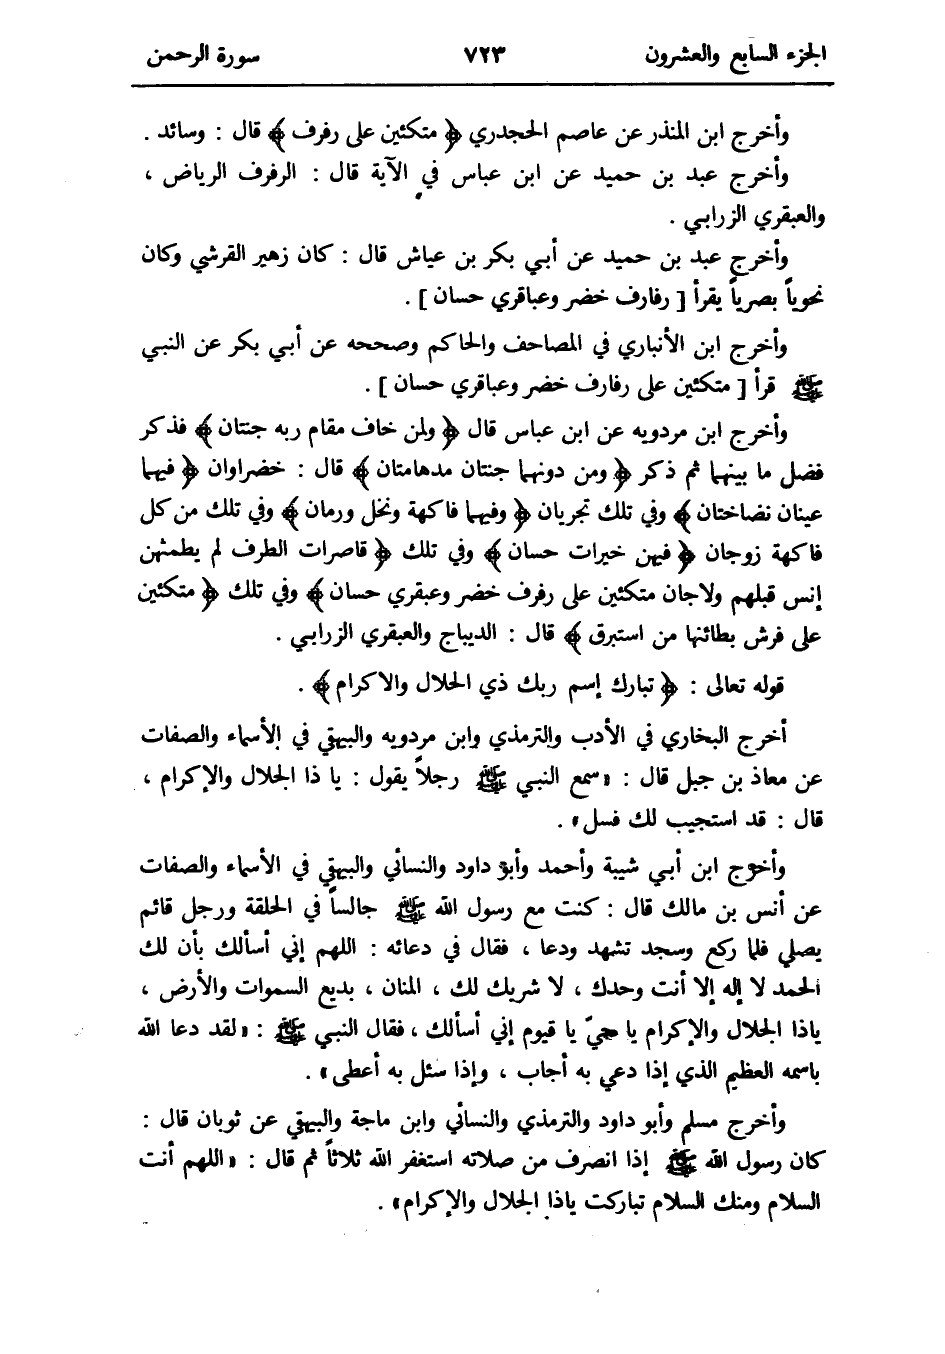 الجزء السابع والعشرون ٧٢٣ سورة الرحمن
وأخرج ابن المنذر عن عاصم الحجدري ﴿ متكئين على رفرف ﴾ قال : وسائد .
وأخرج عبد بن حميد عن ابن عباس في الآية قال : الرفرف الرياض ،
والعبقري الزرابي .
وأخرج عبد بن حميد عن أبي بكر بن عياش قال : كان زهير القرشي وكان
نحوياً بصرياً يقرأ [ رفارف خضر وعباقري حسان ] .
وأخرج ابن الأنباري في المصاحف والحاكم وصححه عن أبي بكر عن النبي
ﷺ قرأ [ متكئين على رفارف خضر وعباقري حسان ] .
وأخرج ابن مردويه عن ابن عباس قال ﴿ ولمن خاف مقام ربه جنتان ﴾ فذكر
فضل ما بينهما ثم ذكر ﴿ ومن دونهما جنتان مدهامتان ﴾ قال : خضراوان ﴿ فيهما
عينان نضاختان ﴾ وفي تلك تجريان ﴿ وفيهما فاكهة ونخل ورمان ﴾ وفي تلك من كل
فاكهة زوجان ﴿ فيهن خيرات حسان ﴾ وفي تلك ﴿ قاصرات الطرف لم يطمثهن
إنس قبلهم ولاجان متكئين على رفرف خضر وعبقري حسان ﴾ وفي تلك ﴿ متكئين
على فرش بطائنها من استبرق ﴾ قال : الديباج والعبقري الزرابي .
قوله تعالى : ﴿ تبارك إسم ربك ذي الجلال والاكرام ﴾ .
أخرج البخاري في الأدب والترمذي وابن مردويه والبيهقي في الأسماء والصفات
عن معاذ بن جبل قال : «سمع النبي ﷺ رجلاً يقول : يا ذا الجلال والإكرام ،
قال : قد استجيب لك فسل» .
وأخرج ابن أبي شيبة وأحمد وأبو داود والنسائي والبيهقي في الأسماء والصفات
عن أنس بن مالك قال : كنت مع رسول الله ﷺ جالساً في الحلقة ورجل قائم
يصلي فلما ركع وسجد تشهد ودعا ، فقال في دعائه : اللهم إني أسألك بأن لك
الحمد لا إله إلا أنت وحدك ، لا شريك لك ، المنان ، بديع السموات والأرض ،
ياذا الجلال والإكرام يا حيّ يا قيوم إني أسألك ، فقال النبي ﷺ : «لقد دعا الله
باسمه العظيم الذي إذا دعي به أجاب ، وإذا سئل به أعطى» .
وأخرج مسلم وأبو داود والترمذي والنسائي وابن ماجة والبيهقي عن ثوبان قال :
كان رسول الله ﷺ إذا انصرف من صلاته استغفر الله ثلاثاً ثم قال : «اللهم أنت
السلام ومنك السلام تباركت ياذا الجلال والإكرام» .